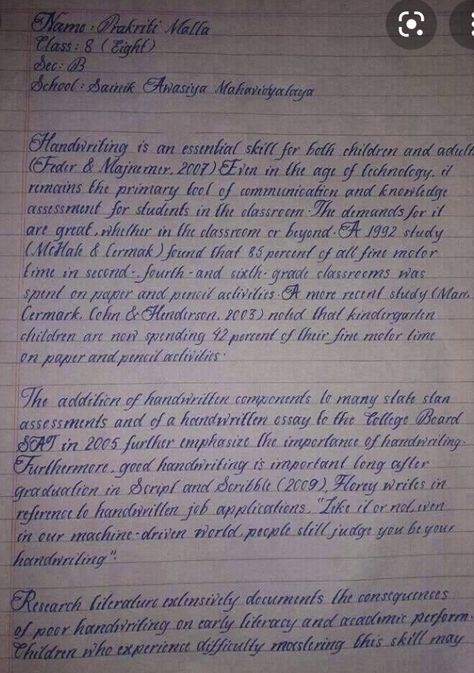 Name : Prakriti Malla
Class : 8 ( Eight)
Sec : B
School : Sainik Awasiya Mahavidyalaya
Handwriting is an essential skill for both children and adult
(Feder & Majnemer, 2007) Even in the age of technology, it
remains the primary tool of communication and knowledge
assessment for students in the classroom. The demands for it
are great, whether in the classroom or beyond. A 1992 study
(McHale & Cermak) found that 85 percent of all fine motor
time in second-, fourth- and sixth- grade classrooms was
spent on paper and pencil activities. A more recent study (Marr,
Cermark, Cohn & Henderson, 2003) noted that kindergarten
children are now spending 42 percent of their fine motor time
on paper and pencil activities.
The addition of handwritten components to many state stan
assessments and of a handwritten essay to the College Board
SAT in 2005 further emphasize the importance of handwriting.
Furthermore, good handwriting is important long after
graduation in Script and Scribble (2009), Florey writes in
reference to handwritten job applications, "Like it or not, even
in our machine-driven world, people still judge you be your
handwriting".
Research literature extensively documents the consequences
of poor handwriting on early literacy and academic perform.
Children who experience difficulty mastering this skill may